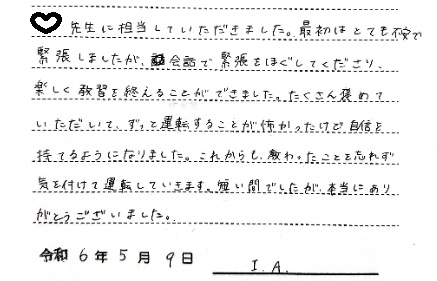 先生に担当していただきました。最初はとても不安で
緊張しましたが、会話で緊張をほぐしてくださり、
楽しく教習を終えることができました。たくさん褒めて
いただいて、ずっと運転することが怖かったけど自信を
持てるようになりました。これからも、教わったことを忘れず
気を付けて運転していきます。短い間でしたが、本当にあり
がとうございました。
令和 6 年 5 月 9 日
I. A.